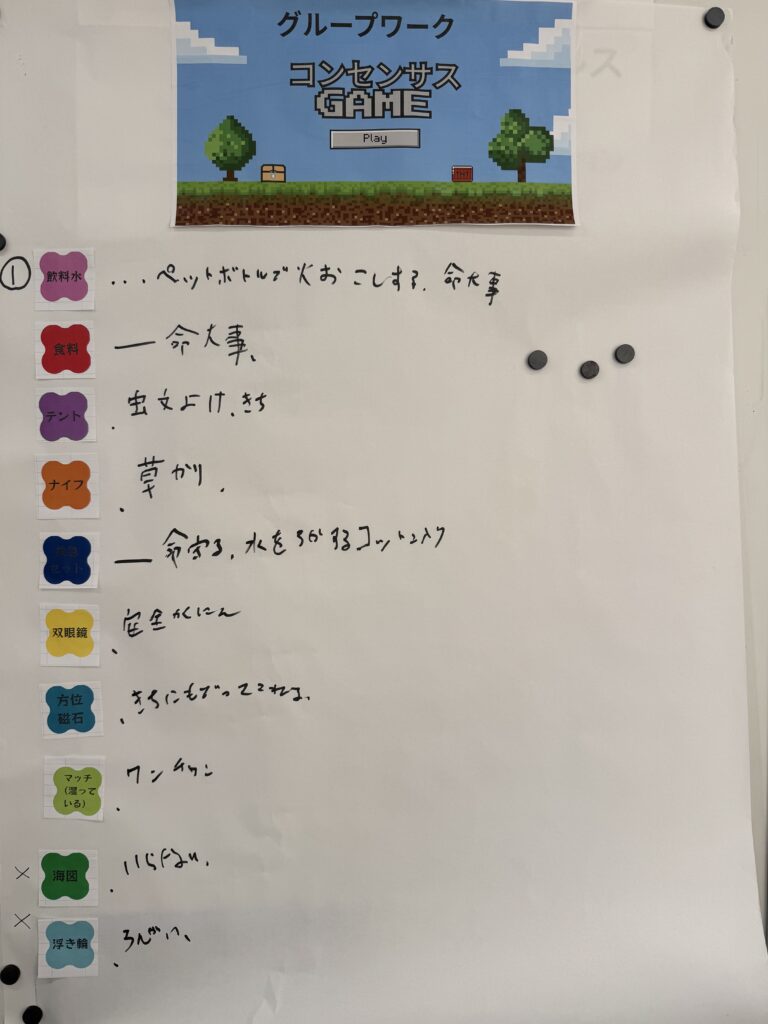 グループワーク
コンセンサス
GAME
Play
① 飲料水 ...ペットボトルで火おこしする、命大事
食料 — 命大事、
テント . 虫文よけ、きち
ナイフ . 草かり .
救急セット — 命守る、水をろかするコットン入り
双眼鏡 . 安全かくにん
方位磁石 . きちにもどってこれる、
マッチ(湿っている) . ワンチャン
× 海図 . いらない、
× 浮き輪 .